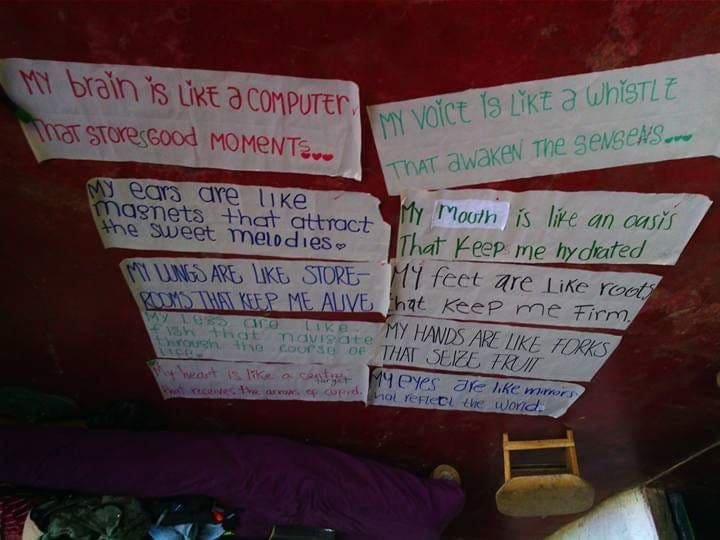 MY braIn is LIKE a COMPUTER
THAT STORES GOOD MOMENTS...
My ears are like
magnets that attract
the sweet melodies.
MY LUNGS ARE LIKE STORE-
ROOMS THAT KEEP ME ALIVE
My Legs are like
fish that navigate
through the course of
life.
My heart is like a centre
target
that receives the arrows of cupid.
MY VOICE IS LIKE a WHISTLE
THAT awaken THE SENSENS...
My Mouth is like an oasis
That Keep me hydrated
My feet are Like roots
that Keep me Firm.
MY HANDS ARE LIKE FORKS
THAT SEIZE FRUIT
My eyes are like mirrors
that reflect the world.